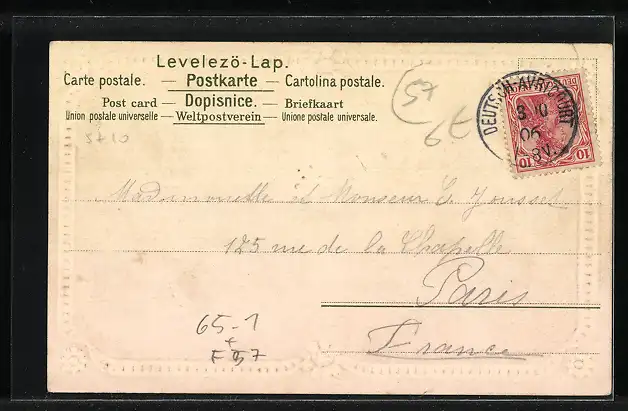 Levelezö-Lap.
Carte postale. — Postkarte — Cartolina postale.
Post card — Dopisnice. — Briefkaart
Union postale universelle — Weltpostverein — Unione postale universale.
DEUTSCH-AVRICOURT
10 10
57
6t
Monsieur
125 rue de la Chapelle
Paris
France
65-1
+